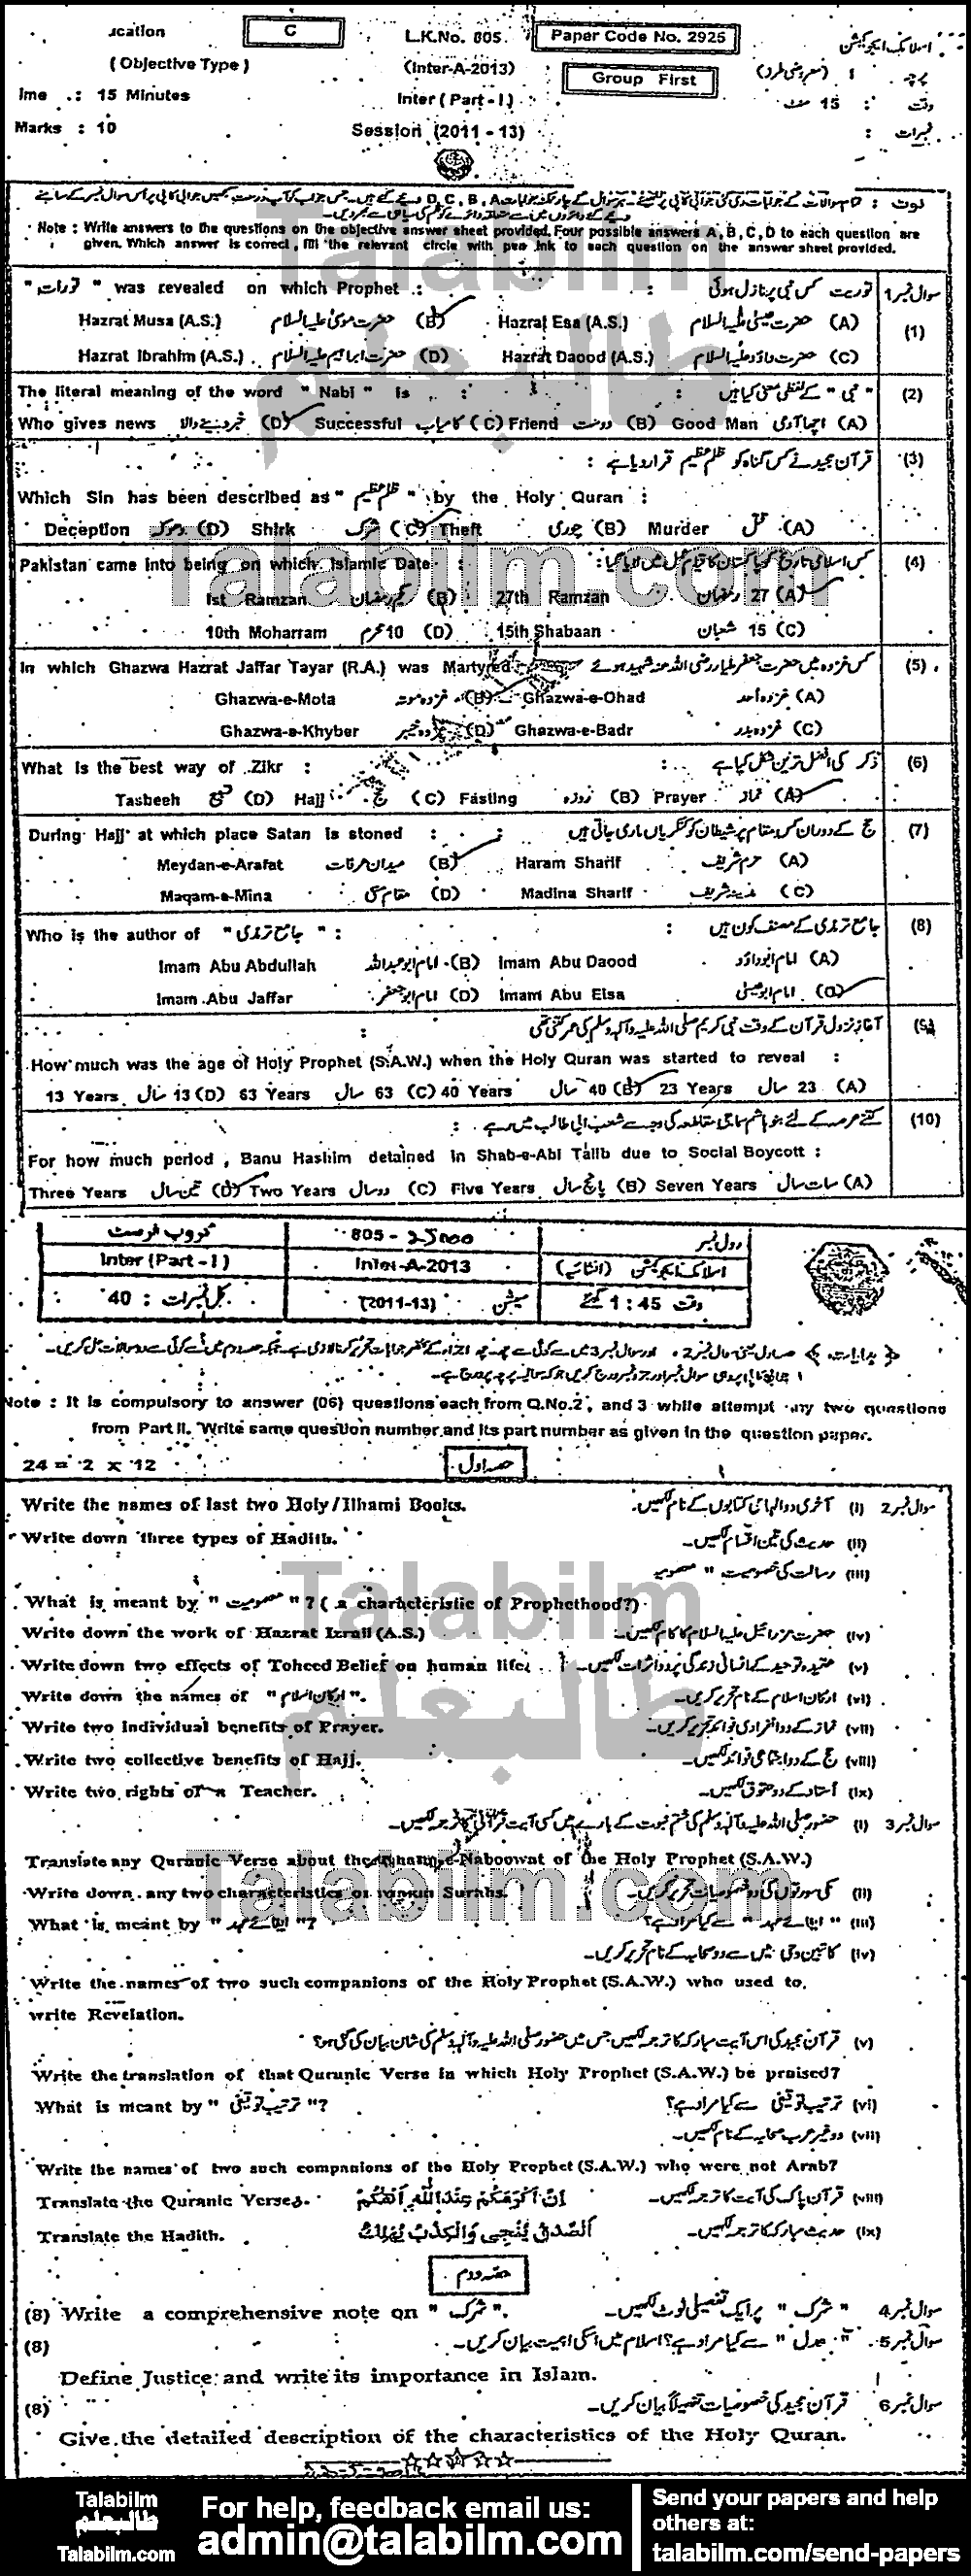 ucation C L.K.No. 805. Paper Code No. 2925 اسلامک ایجوکیشن
( Objective Type ) (Inter-A-2013) Group First پرچہ : (معروضی طرز)
ime .: 15 Minutes Inter ( Part - I ) وقت : 15 منٹ
Marks : 10 Session (2011 - 13) نمبرات :
نوٹ :
Note : Write answers to the questions on the objective answer sheet provided. Four possible answers A, B, C, D to each question are
given. Which answer is correct, fill the relevant circle with pen ink to each question on the answer sheet provided.
" تورات " was revealed on which Prophet : توریت کس نبی پر نازل ہوئی : سوال نمبر 1
(1)
Hazrat Musa (A.S.) حضرت موسیٰ علیہ السلام (B) Hazrat Esa (A.S.) حضرت عیسیٰ علیہ السلام (A)
Hazrat Ibrahim (A.S.) حضرت ابراہیم علیہ السلام (D) Hazrat Daood (A.S.) حضرت داؤد علیہ السلام (C)
The literal meaning of the word " Nabi " is : " نبی " کے لفظی معنی کیا ہیں : (2)
Who gives news خبر دینے والا (D) Successful کامیاب (C) Friend دوست (B) Good Man اچھا آدمی (A)
قرآن مجید نے کس گناہ کو ظلم عظیم قرار دیا ہے : (3)
Which Sin has been described as " ظلم عظیم " by the Holy Quran :
Deception دھوکہ (D) Shirk شرک (C) Theft چوری (B) Murder قتل (A)
Pakistan came into being on which Islamic Date : کس اسلامی تاریخ کو پاکستان کا قیام عمل میں لایا گیا : (4)
1st Ramzan یکم رمضان (B) 27th Ramzan 27 رمضان (A)
10th Moharram 10 محرم (D) 15th Shabaan 15 شعبان (C)
In which Ghazwa Hazrat Jaffar Tayar (R.A.) was Martyred کس غزوہ میں حضرت جعفر طیار رضی اللہ عنہ شہید ہوئے (5)
Ghazwa-e-Mota غزوہ موتہ (B) Ghazwa-e-Ohad غزوہ احد (A)
Ghazwa-e-Khyber غزوہ خیبر (D) Ghazwa-e-Badr غزوہ بدر (C)
What is the best way of Zikr : ذکر کی افضل ترین شکل کیا ہے : (6)
Tasbeeh تسبیح (D) Hajj حج (C) Fasting روزہ (B) Prayer نماز (A)
During Hajj at which place Satan is stoned : حج کے دوران کس مقام پر شیطان کو کنکریاں ماری جاتی ہیں (7)
Meydan-e-Arafat میدان عرفات (B) Haram Sharif حرم شریف (A)
Maqam-e-Mina مقام منیٰ (D) Madina Sharif مدینہ شریف (C)
Who is the author of " جامع ترمذی " : جامع ترمذی کے مصنف کون ہیں : (8)
Imam Abu Abdullah امام ابو عبداللہ (B) Imam Abu Daood امام ابو داؤد (A)
Imam Abu Jaffar امام ابو جعفر (D) Imam Abu Eisa امام ابو عیسیٰ (C)
آغاز نزول قرآن کے وقت نبی کریم صلی اللہ علیہ وآلہ وسلم کی عمر کتنی تھی : (9)
How much was the age of Holy Prophet (S.A.W.) when the Holy Quran was started to reveal :
13 Years 13 سال (D) 63 Years 63 سال (C) 40 Years 40 سال (B) 23 Years 23 سال (A)
کتنے عرصہ کے لئے بنو ہاشم سماجی مقاطعہ کی وجہ سے شعب ابی طالب میں رہے : (10)
For how much period , Banu Hashim detained in Shab-e-Abi Talib due to Social Boycott :
Three Years تین سال (D) Two Years دو سال (C) Five Years پانچ سال (B) Seven Years سات سال (A)
گروپ فرسٹ 805 - 25000 رول نمبر
Inter (Part - I) Inter-A-2013 اسلامک ایجوکیشن (انشائیہ)
کل نمبرات : 40 سیشن (2011-13) وقت 1 : 45 گھنٹے
Note : It is compulsory to answer (06) questions each from Q.No.2 , and 3 while attempt any two questions
from Part II. Write same question number and its part number as given in the question paper.
24 = 2 x 12 حصہ اول
Write the names of last two Holy/Ilhami Books. آخری دو الہامی کتابوں کے نام لکھیں۔ (i) سوال نمبر 2
Write down three types of Hadith. حدیث کی تین اقسام لکھیں۔ (ii)
رسالت کی خصوصیت " معصومیت (iii)
What is meant by " معصومیت " ? ( a characteristic of Prophethood?)
Write down the work of Hazrat Izrail (A.S.) حضرت عزرائیل علیہ السلام کا کام لکھیں۔ (iv)
Write down two effects of Toheed Belief on human life. عقیدہ توحید کے انسانی زندگی پر دو اثرات لکھیں۔ (v)
Write down the names of " ارکان اسلام ". ارکان اسلام کے نام تحریر کریں۔ (vi)
Write two individual benefits of Prayer. نماز کے دو انفرادی فوائد تحریر کریں۔ (vii)
Write two collective benefits of Hajj. حج کے دو اجتماعی فوائد لکھیں۔ (viii)
Write two rights of a Teacher. استاد کے دو حقوق لکھیں۔ (ix)
حضور صلی اللہ علیہ وآلہ وسلم کی ختم نبوت کے بارے میں کسی آیت قرآنی کا ترجمہ لکھیں۔ (i) سوال نمبر 3
Translate any Quranic Verse about the Naboowat of the Holy Prophet (S.A.W.)
Write down any two characteristics of Surahs. مکی سورتوں کی دو خصوصیات تحریر کریں۔ (ii)
What is meant by " ایفائے عہد "? " ایفائے عہد " سے کیا مراد ہے؟ (iii)
کاتبین وحی میں سے دو صحابہ کے نام تحریر کریں۔ (iv)
Write the names of two such companions of the Holy Prophet (S.A.W.) who used to
write Revelation.
قرآن مجید کی اس آیت مبارکہ کا ترجمہ لکھیں جس میں حضور صلی اللہ علیہ وآلہ وسلم کی شان بیان کی گئی ہو؟ (v)
Write the translation of that Quranic Verse in which Holy Prophet (S.A.W.) be praised?
What is meant by " ترتیب توقیفی "? ترتیب توقیفی سے کیا مراد ہے؟ (vi)
دو غیر عرب صحابہ کے نام لکھیں۔ (vii)
Write the names of two such companions of the Holy Prophet (S.A.W.) who were not Arab?
Translate the Quranic Verses. اِنَّ اَكْرَمَكُمْ عِنْدَ اللّٰهِ اَتْقٰكُمْ قرآن پاک کی آیت کا ترجمہ لکھیں۔ (viii)
Translate the Hadith. اَلصِّدْقُ يُنْجِي وَالْكِذْبُ يُهْلِكُ حدیث مبارکہ کا ترجمہ لکھیں۔ (ix)
حصہ دوم
(8) Write a comprehensive note on " شرک ". " شرک " پر ایک تفصیلی نوٹ لکھیں۔ سوال نمبر 4
(8) " عدل " سے کیا مراد ہے؟ اسلام میں اسکی اہمیت بیان کریں۔ سوال نمبر 5
Define Justice and write its importance in Islam.
(8) قرآن مجید کی خصوصیات تفصیلاً بیان کریں۔ سوال نمبر 6
Give the detailed description of the characteristics of the Holy Quran.
Talabilm
طالبعلم
Talabilm.com
For help, feedback email us:
admin@talabilm.com
Send your papers and help
others at:
talabilm.com/send-papers